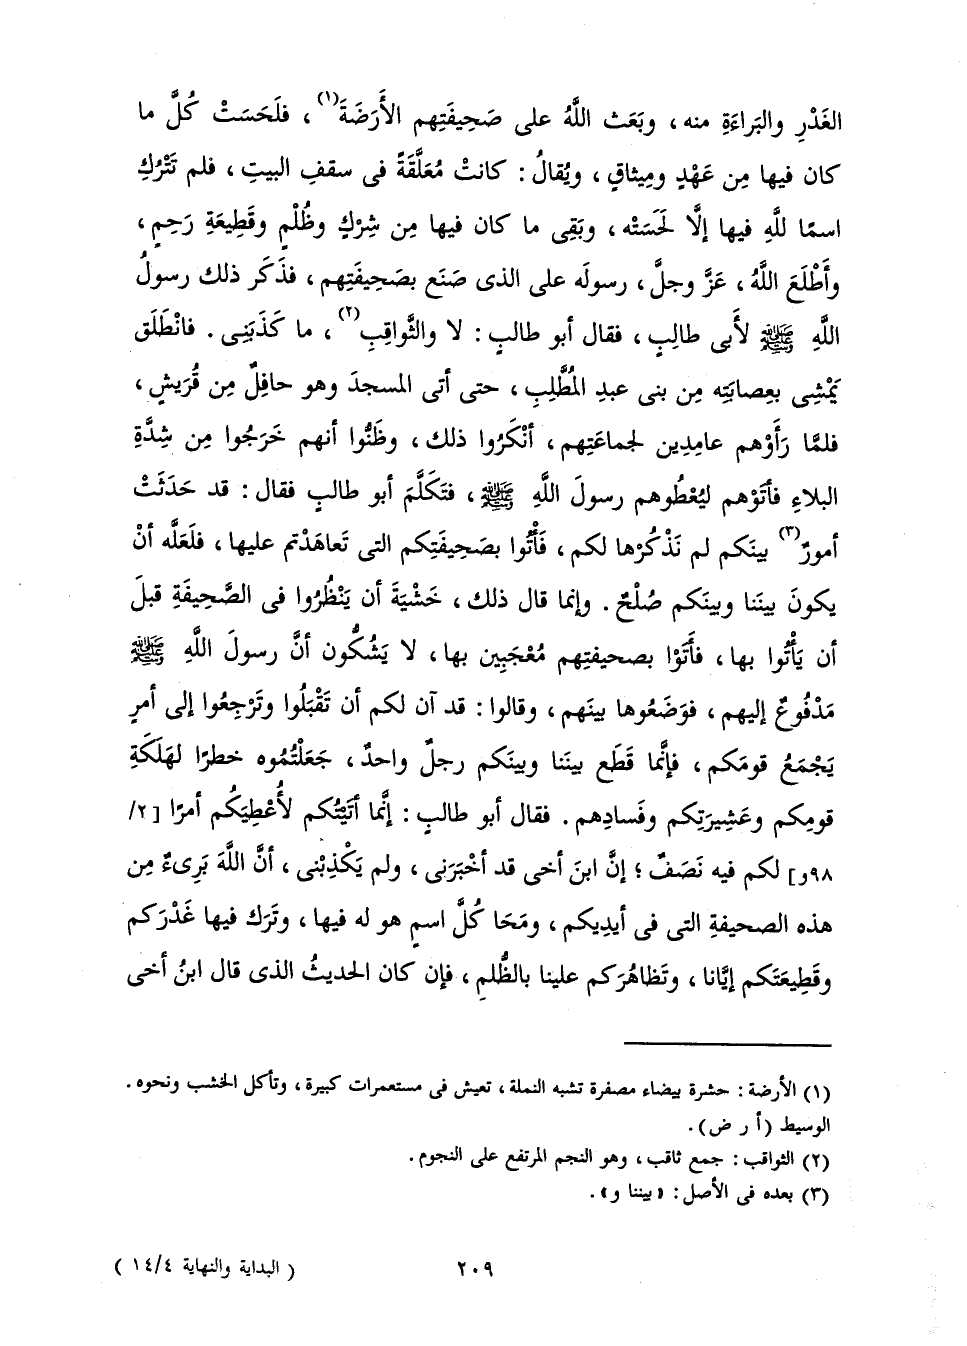 الغَدْرِ والبَراءَةِ منه، وبَعَث اللَّهُ على صَحِيفَتِهم الأَرَضَةَ(١)، فلَحَسَتْ كُلَّ ما
كان فيها مِن عَهْدٍ ومِيثاقٍ، ويُقالُ: كانتْ مُعَلَّقَةً فى سقفِ البيتِ، فلم تَتْرُكِ
اسمًا للَّهِ فيها إلَّا لَحَسَتْه، وبَقِى ما كان فيها مِن شِرْكٍ وظُلْمٍ وقَطِيعَةِ رَحِمٍ،
وأَطْلَعَ اللَّهُ، عَزَّ وجلَّ، رسولَه على الذى صَنَع بصَحِيفَتِهم، فذَكَر ذلك رسولُ
اللَّهِ ﷺ لأَبى طالِبٍ، فقال أبو طالبٍ: لا والثَّواقِبِ(٢)، ما كَذَبَنِى. فانْطَلَق
يَمْشِى بعِصابَتِه مِن بنى عبدِ المُطَّلِبِ، حتى أتى المسجدَ وهو حافِلٌ مِن قُرَيشٍ،
فلمَّا رَأَوْهم عامِدِين لجماعَتِهم، أنْكَرُوا ذلك، وظَنُّوا أنهم خَرَجُوا مِن شِدَّةِ
البلاءِ فأتَوْهم ليُعْطُوهم رسولَ اللَّهِ ﷺ، فتَكَلَّمَ أبو طالبٍ فقال: قد حَدَثَتْ
أمورٌ(٣) بينَكم لم نَذْكُرْها لكم، فَأْتُوا بصَحِيفَتِكم التى تَعاهَدْتم عليها، فلَعَلَّه أنْ
يكونَ بينَنا وبينَكم صُلْحٌ. وإنما قال ذلك، خَشْيَةَ أن يَنْظُرُوا فى الصَّحِيفَةِ قبلَ
أن يَأْتُوا بها، فأَتَوْا بصحيفتِهم مُعْجَبِين بها، لا يَشُكُّون أنَّ رسولَ اللَّهِ ﷺ
مَدْفُوعٌ إليهم، فوَضَعُوها بينَهم، وقالوا: قد آن لكم أن تَقْبَلُوا وتَرْجِعُوا إلى أمرٍ
يَجْمَعُ قومَكم، فإنَّما قَطَع بينَنا وبينَكم رجلٌ واحدٌ، جَعَلْتُمُوه خطرًا لهَلَكَةِ
قومِكم وعَشِيرَتِكم وفَسادِهم. فقال أبو طالبٍ: إنَّما أتَيْتُكم لأُعْطِيَكُم أمرًا [٢/
٩٨و] لكم فيه نَصَفٌ؛ إنَّ ابنَ أخى قد أخْبَرَنى، ولم يَكْذِبْنى، أنَّ اللَّهَ بَرِىءٌ مِن
هذه الصحيفةِ التى فى أيدِيكم، ومَحَا كُلَّ اسمٍ هو له فيها، وتَرَك فيها غَدْرَكم
وقَطِيعَتَكم إيَّانا، وتَظاهُرَكم علينا بالظُّلمِ، فإن كان الحديثُ الذى قال ابنُ أخى
(١) الأرضة: حشرة بيضاء مصفرة تشبه النملة، تعيش فى مستعمرات كبيرة، وتأكل الخشب ونحوه.
الوسيط (أ ر ض).
(٢) الثواقب: جمع ثاقب، وهو النجم المرتفع على النجوم.
(٣) بعده فى الأصل: «بيننا و».
٢٠٩
( البداية والنهاية ١٤/٤ )